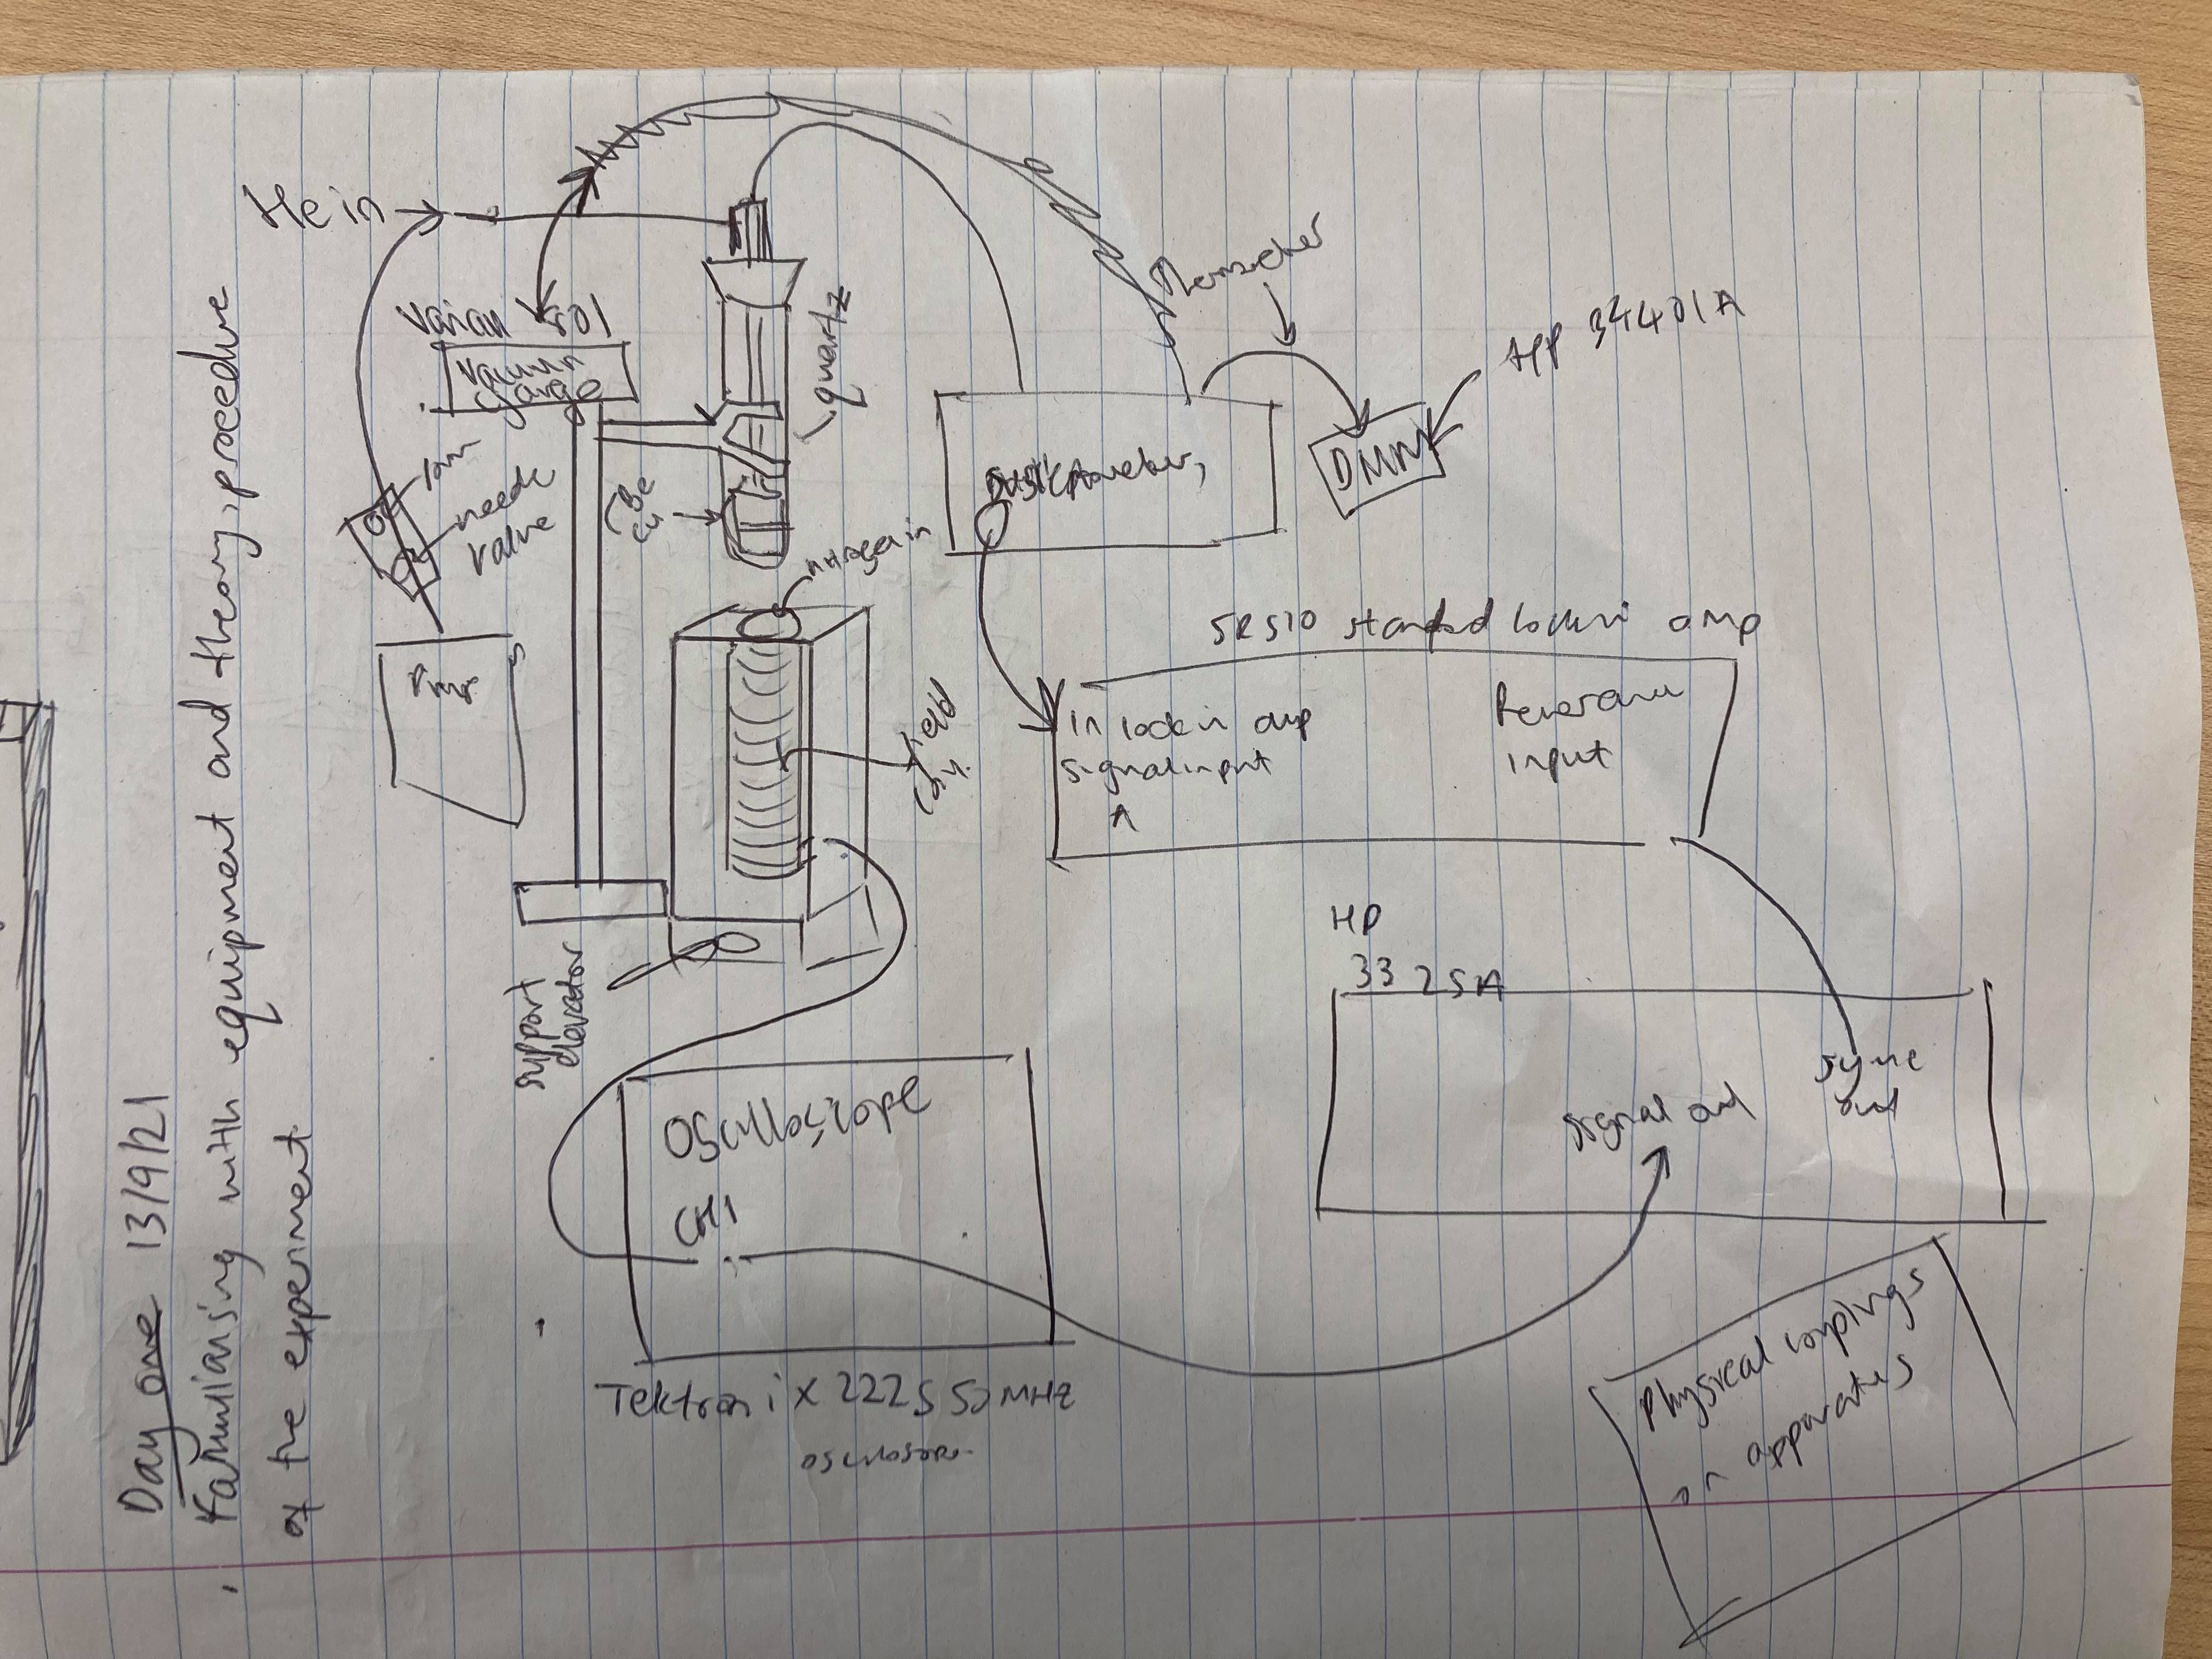 Day one 13/9/21
. Familiarising with equipment and theory, procedure
of the experiment.
He in
Varian 801
Vacuum
Gauge
needle
valve
Be
Cu
quartz
nitrogen in
field
coil
support
elevator
Thermometer
DMM
34401A
SR510 standard lockin amp
in lock in amp
signal input
A
Reference
input
HP
3325A
signal out
sync
out
Oscilloscope
CH1
Tektronix 2225 50 MHz
Physical couplings
on apparatus